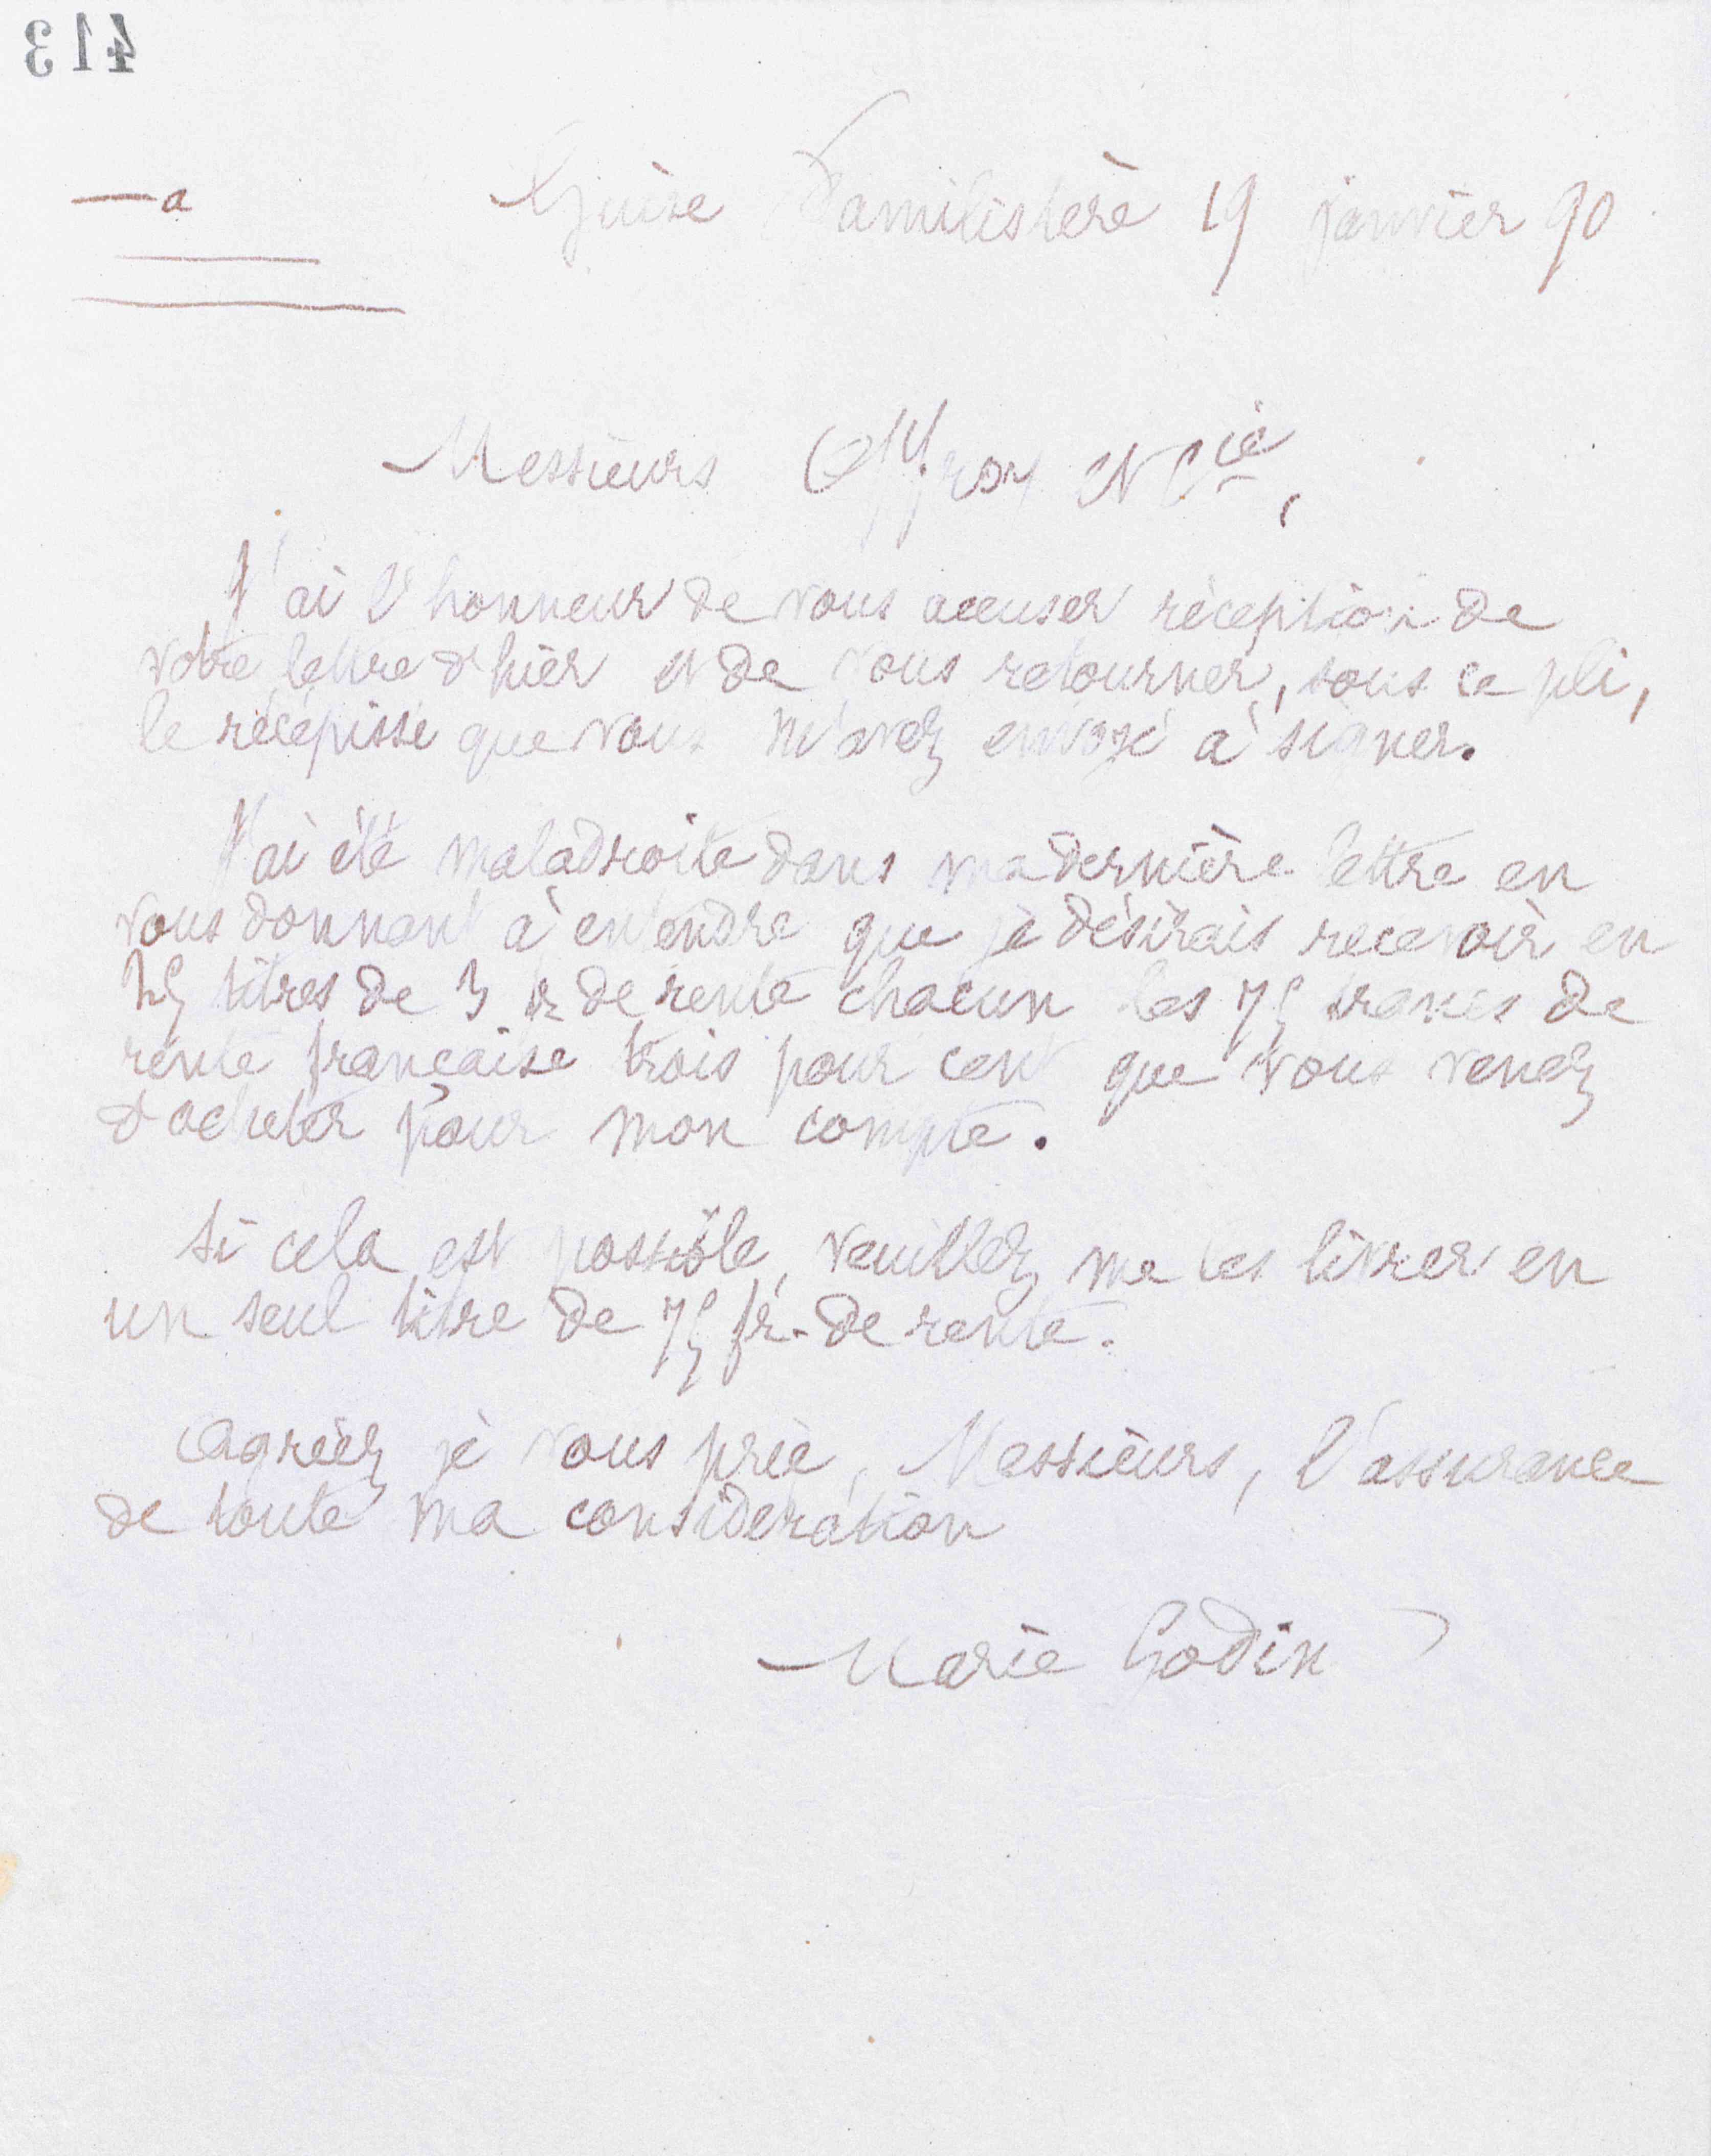 413
a
Guise Familistère 19 janvier 90
Messieurs Offroy et Cie,
J'ai l'honneur de vous accuser réception de
votre lettre d'hier et de vous retourner, sous ce pli,
le récépissé que vous m'avez envoyé à signer.
J'ai été maladroite dans ma dernière lettre en
vous donnant à entendre que je désirais recevoir en
25 titres de 3 fr de rente chacun les 75 francs de
rente française trois pour cent que vous venez
d'acheter pour mon compte.
Si cela est possible, veuillez me les livrer en
un seul titre de 75 fr. de rente.
Agréez je vous prie, Messieurs, l'assurance
de toute ma considération
Marie Godin